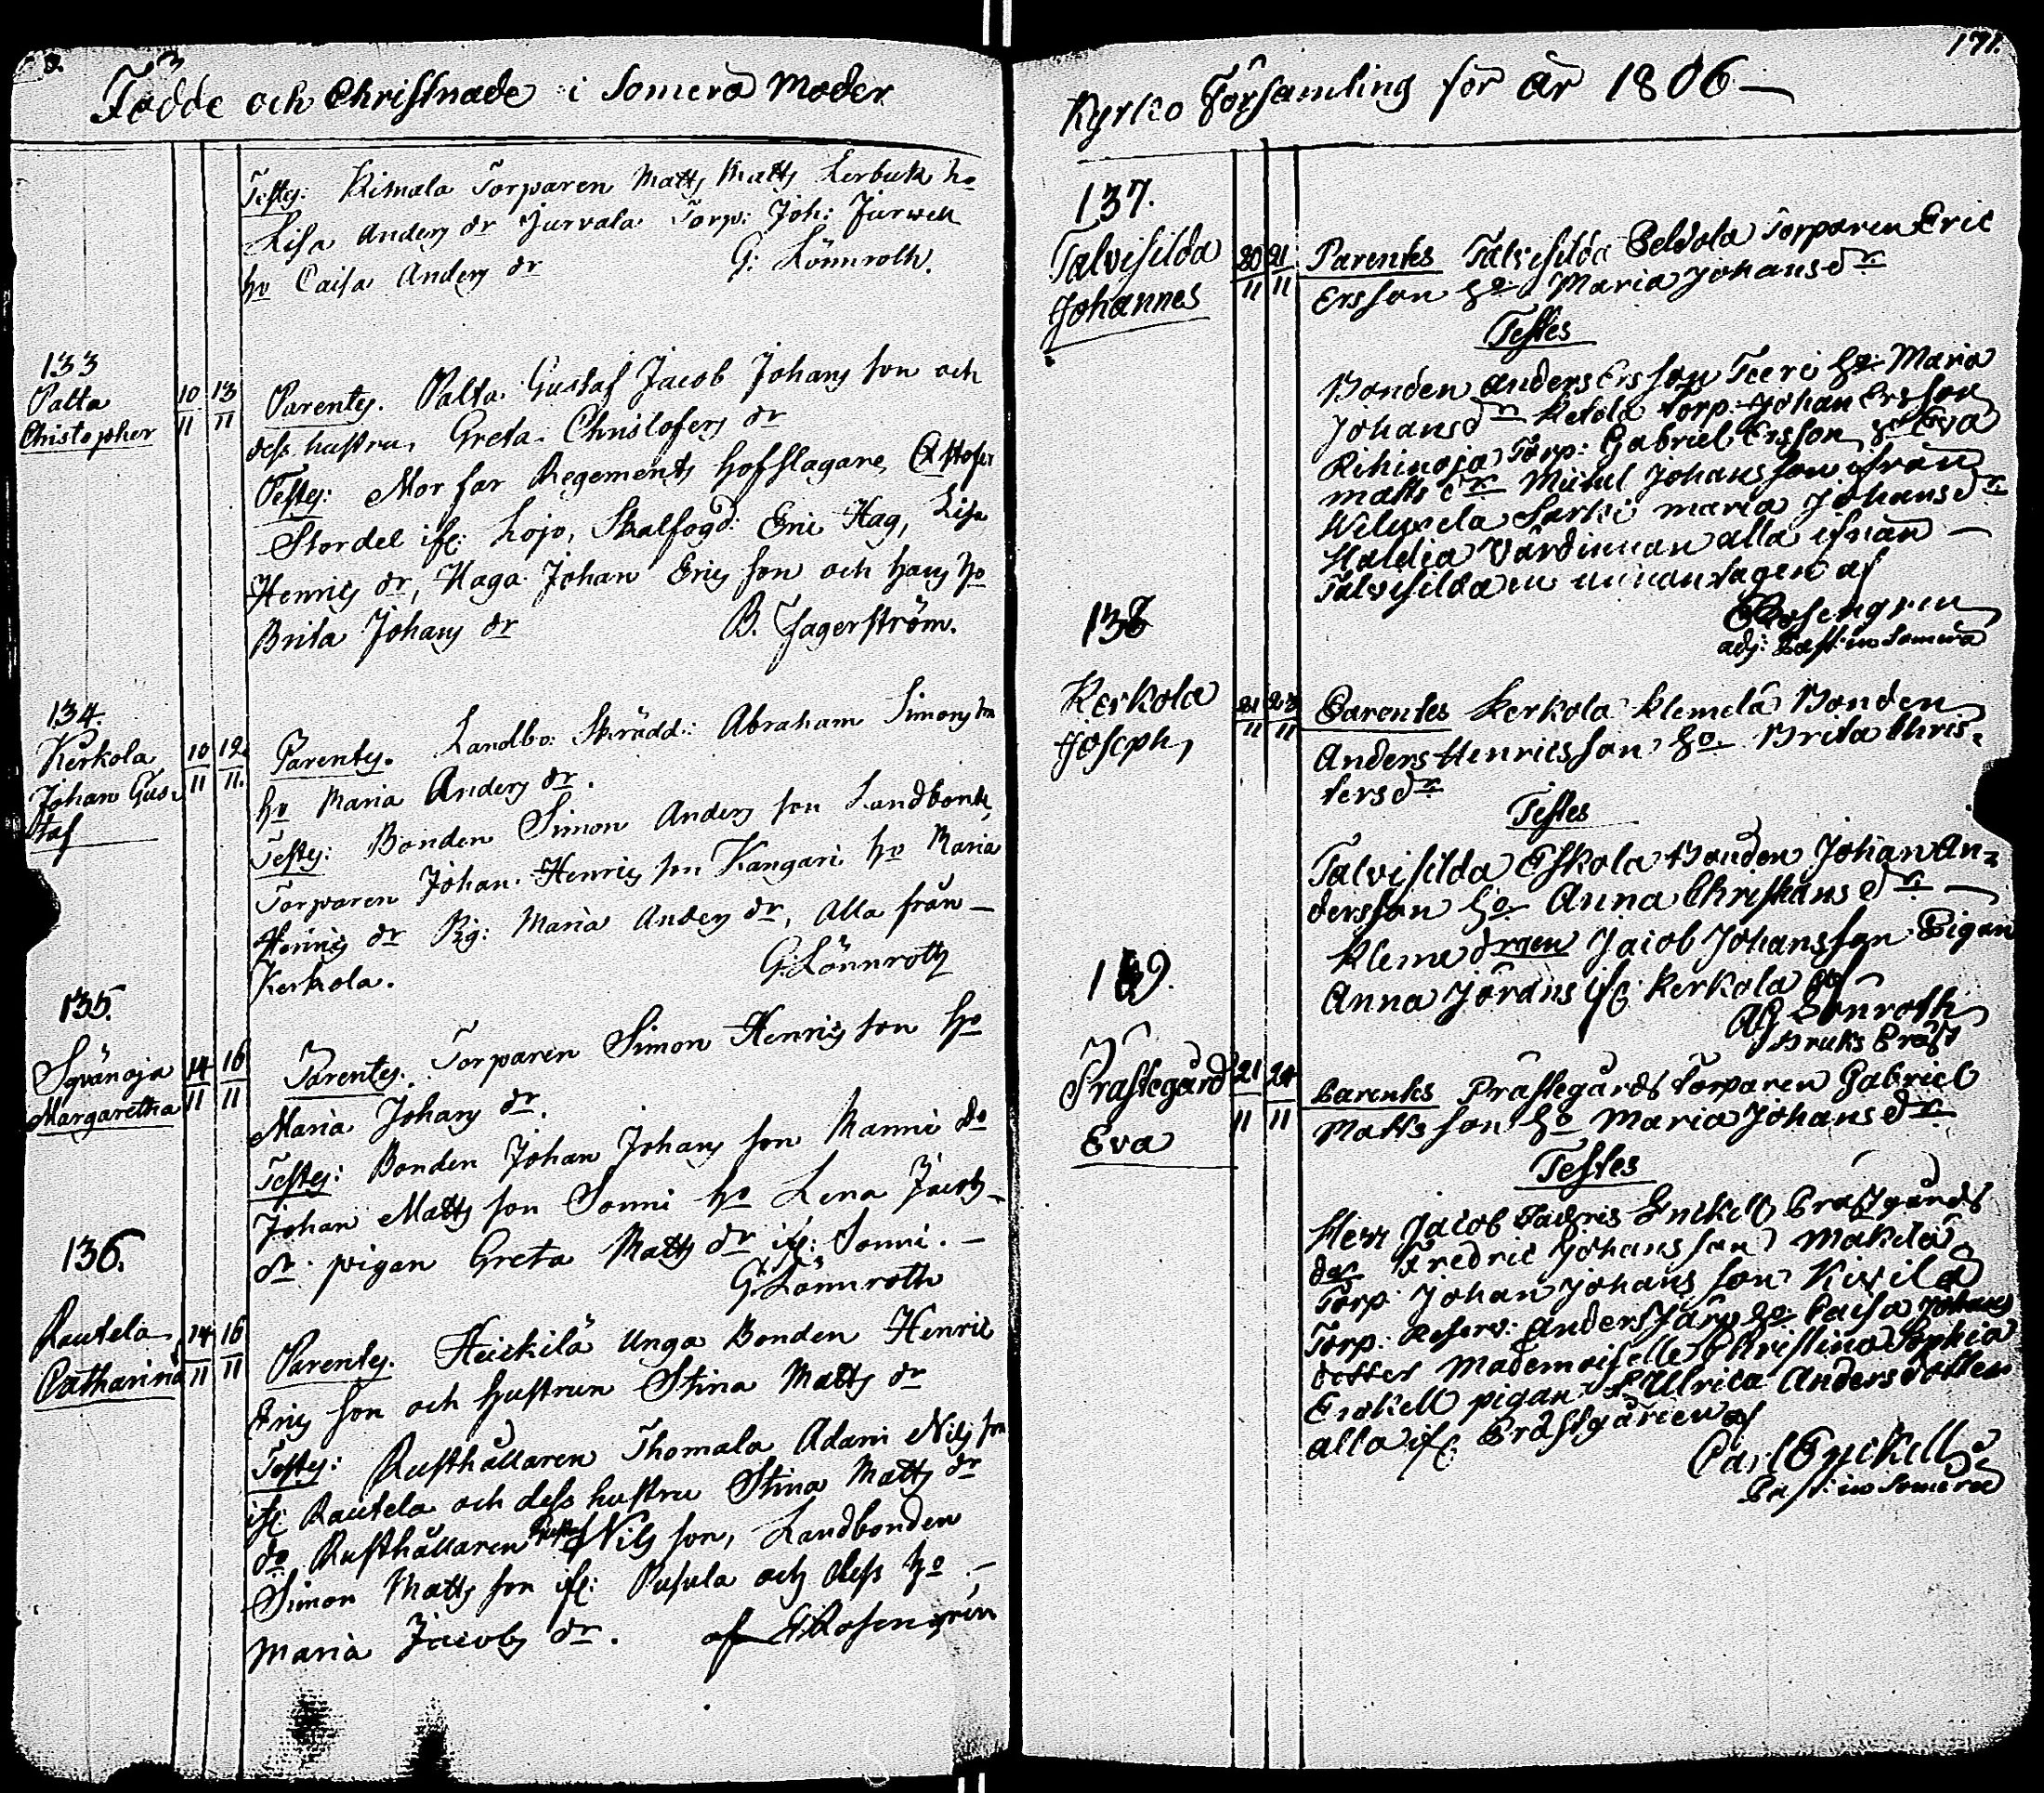 Födde och Christnade i Somero Moder
Testes: Kimala Torparen Matts Matts Lerbuk ho
Lisa Anders dr Jurvala Torp: Joh: Jurvell
ho Caisa Anders dr G: Lönnroth.
133
Palta
Christopher
10 13
11 11
Parentes. Palta Gustaf Jacob Johans son och
dess hustru, Greta Christofers dr
Testes: Mor far Regements hofslagare
Stordel ifr: Lojo, Skalfogd: Eric Hag, Lisa
Henrics dr, Haga Johan Erics son och hans ho
Brita Johans dr B. Fagerström.
134.
Kerkola
Johan Gus-
taf
10 12
11 11.
Parentes. Landbo. Skrädd: Abraham Simons sn
ho Maria Anders dr.
Testes: Bonden Simon Anders son
Torparen Johan Henrics son Kangari ho Maria
Henrics dr Pig: Maria Anders dr, Alla från —
Kerkola. G: Lönnroth
135.
Syvänoja
Margaretha
14 16
11 11
Parentes. Torparen Simon Henrics son ho
Maria Johans dr.
Testes: Bonden Johan Johans son Manni do
Johan Matts son Sonni ho Lena Jacobs
dr. pigan Greta Matts dr ifr: Sonni. —
G: Lönnroth
136.
Rautela
Catharina
14 16
11 11
Parentes. Heickilä Unga Bonden Henric
Erics son och Hustrun Stina Matts dr
Testes: Rusthållaren Thomala Adam Nils sn
ifr: Rautela och dess hustru Stina Matts dr
do Rusthållaren Gustaf Nils son, Landbonden
Simon Matts son ifr: Pusula och dess ho —
Maria Jacobs dr. af Rosengrén
171.
Kyrko Församling för år 1806 —
137.
Talvisilda
Johannes
20 21
11 11
Parentes Talvisilda Peldola Torparen Eric
Ersson ho Maria Johansdr
Testes
Bonden Anders Ersson Teeri ho Maria
Johansdr Ketola Torp: Johan Ersson
Rihinoja Torp: Gabriel Ersson ho Eva
Matts dr Michel Johansson ifrån
Särki Maria Johansdr
Värdinnan alla ifrån —
Talvisilda af
Rosengren
adj: Past: in Somero
138
Kerkola
Joseph
21 23
11 11
Parentes Kerkola Klemelä Bonden
Anders Henricsson ho Brita Chris-
tersdr
Testes
Talvisilda Eskola Bonden Johan An-
dersson ho Anna Christiansdr —
Kleme drgen Jacob Johansson Pigan
Anna Jörans ifr: Kerkola af
Lönroth
Bruks Präst
139.
Prästegård
Eva
21 24
11 11
Parentes Prästegårds Torparen Gabriel
Matts son ho Maria Johansdr
Testes
Herr Jacob Enckell Prästgårds
Fredric Johansson Mäkilä
Torp: Johan Johans son Kivilä
Torp. Reserv: Anders ho Caisa Johans
dotter Mademoiselle Christina Sophia
Enckell pigan Ulrica Andersdotter
alla ifr: Prästgården af
Carl Enckell
Past: in Somero